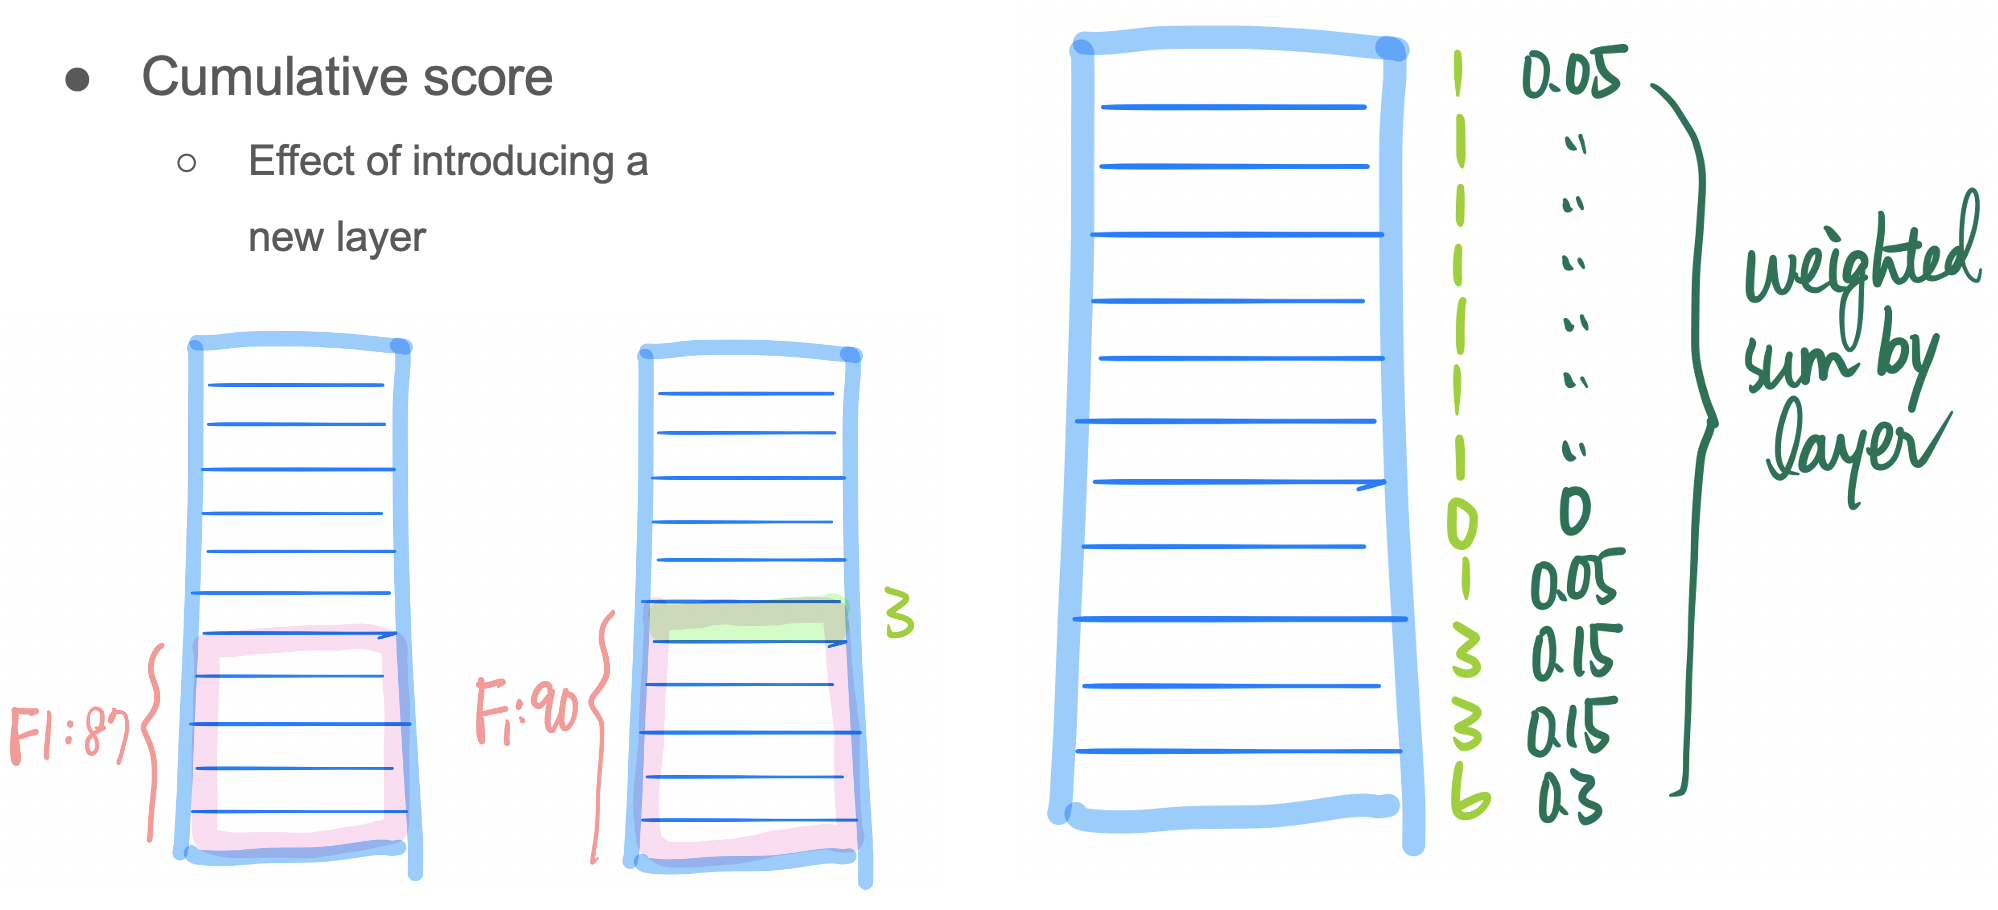 ● Cumulative score
○ Effect of introducing a
new layer
F1:87
F1:90
3
1 0.05
1 "
1 "
1 "
1 "
1 "
1 "
0 0
1 0.05
3 0.15
3 0.15
6 0.3
weighted
sum by
layer